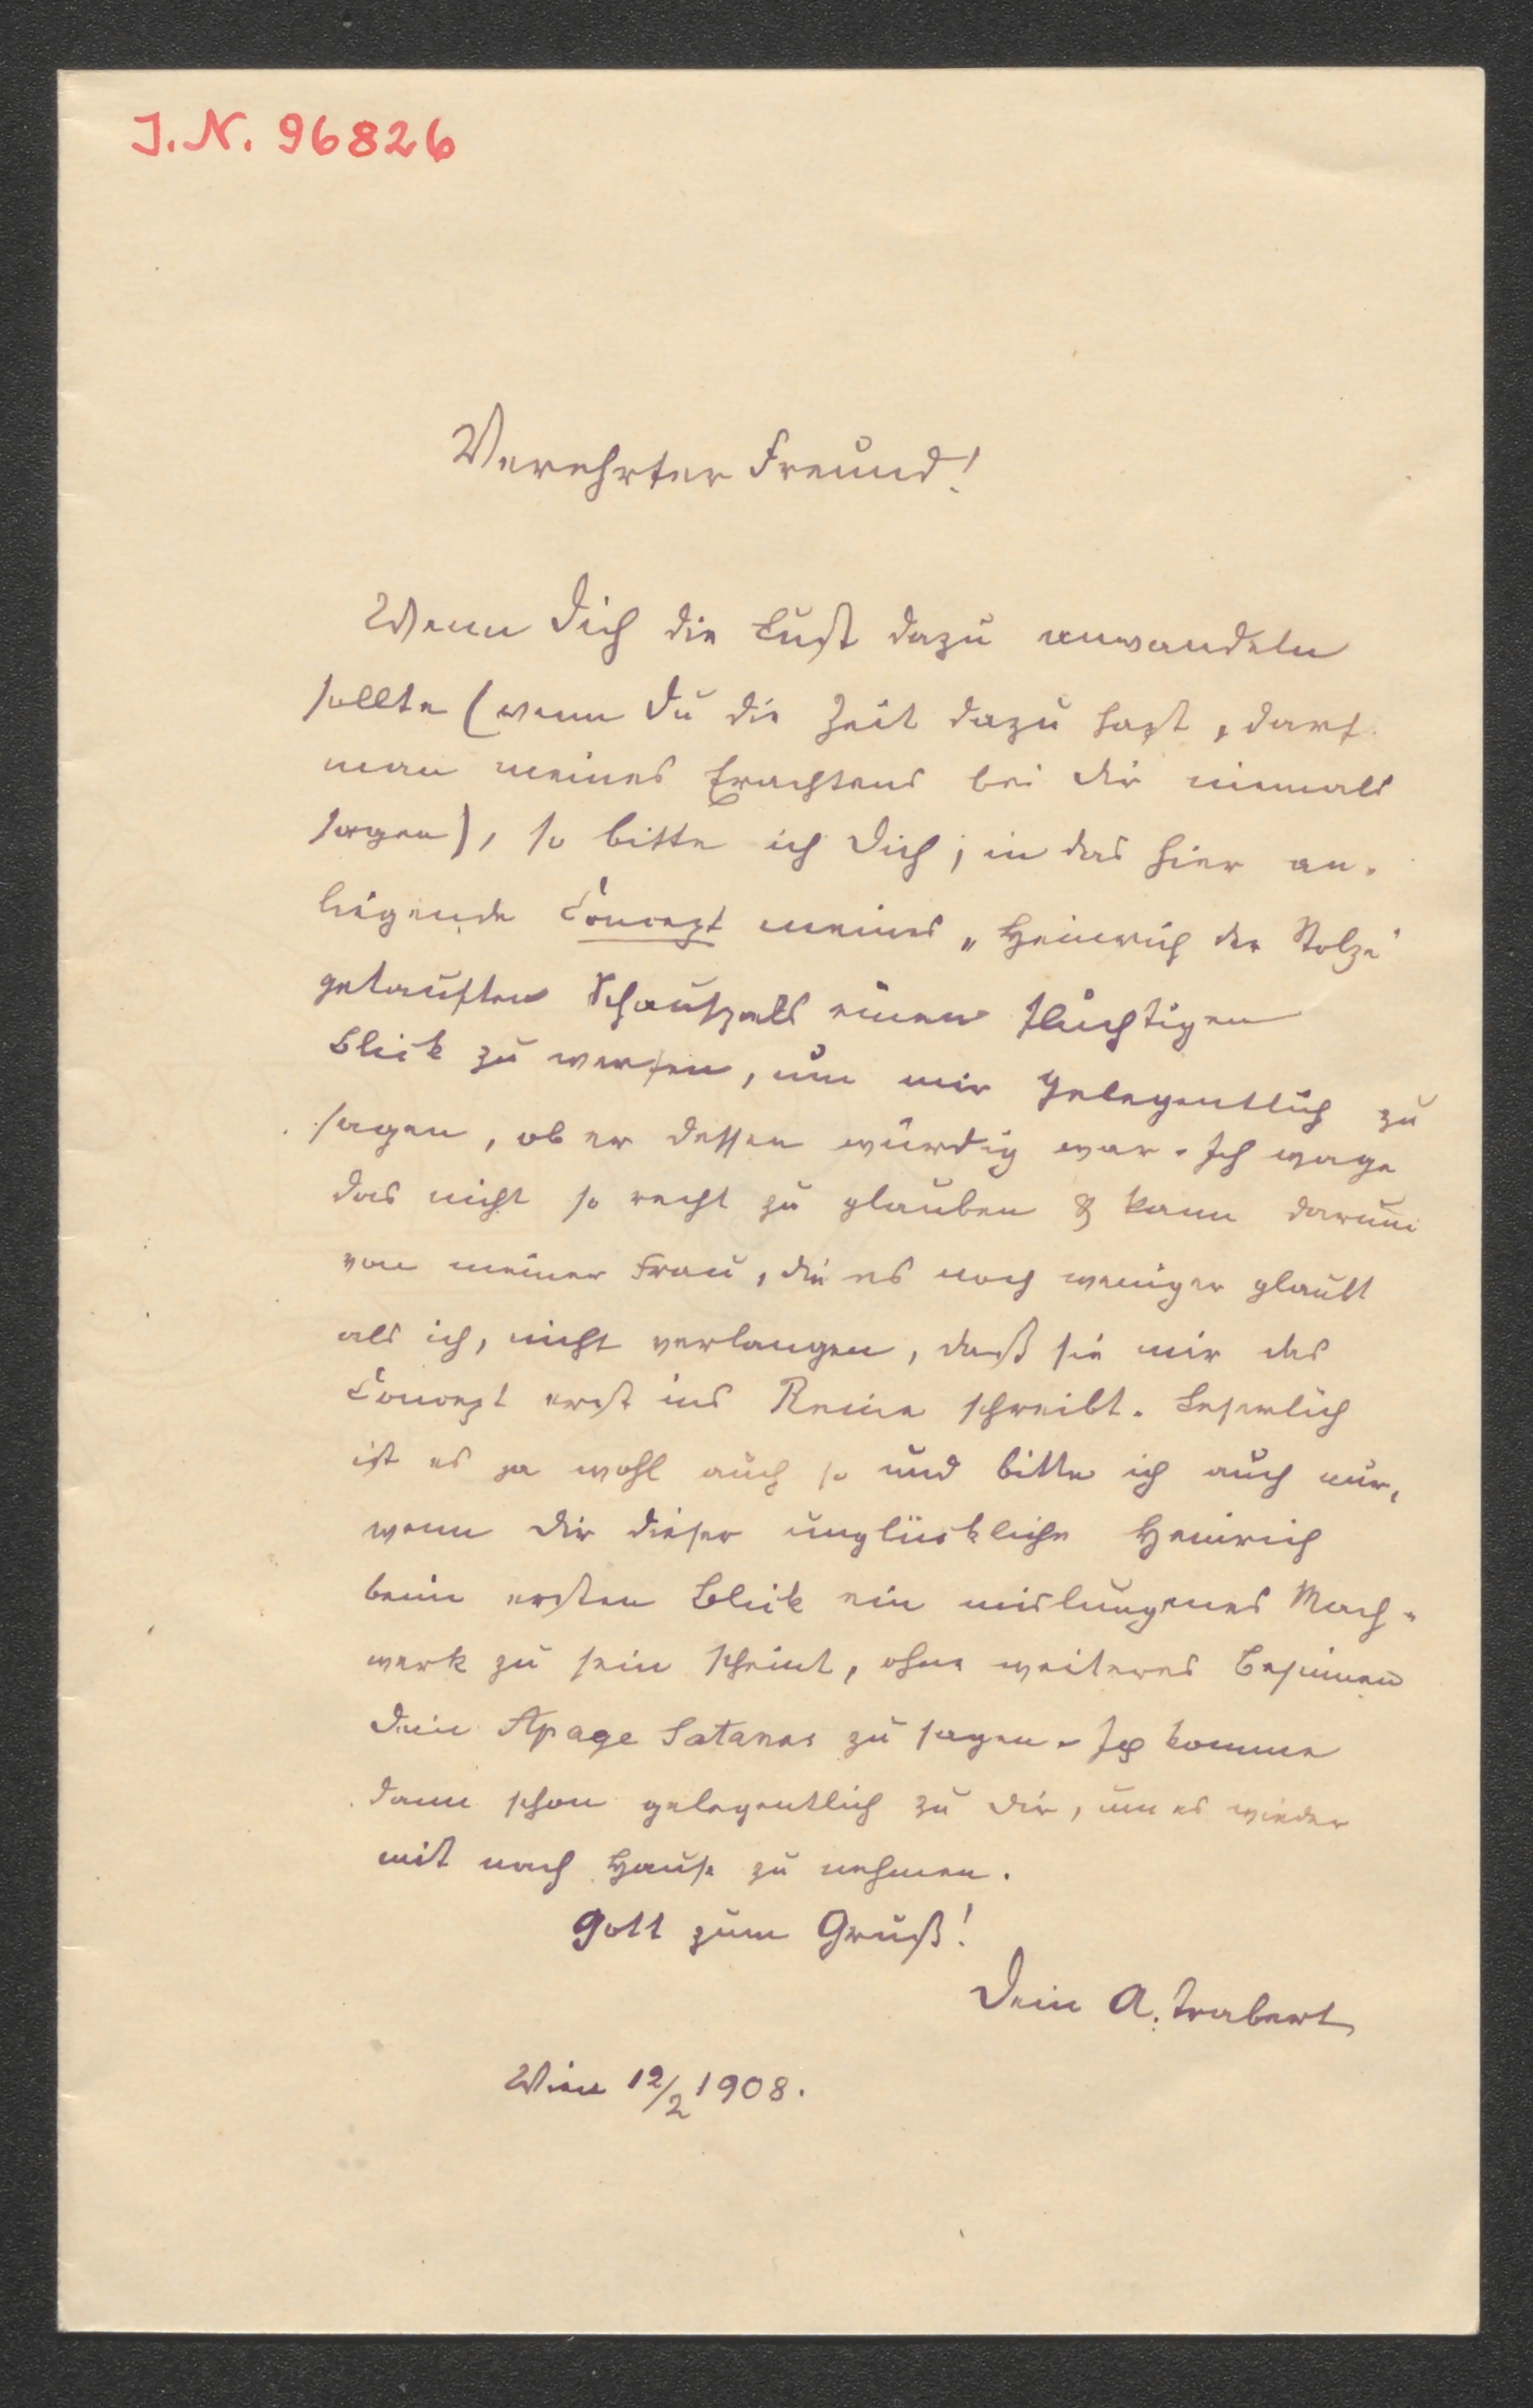 J. N. 96826
Verehrter Freund!
Wenn Dich die Lust dazu anwandeln
sollte (wenn Du die Zeit dazu hast, darf
man meines Erachtens bei Dir niemals
sagen), so bitte ich Dich, in das hier an-
liegende Concept meines „Heinrich der Stolze"
getauften Schauspiels einen flüchtigen
Blick zu werfen, um mir gelegentlich zu
sagen, ob er dessen würdig war. Ich wage
das nicht so recht zu glauben & kann darum
von meiner Frau, die es noch weniger glaubt
als ich, nicht verlangen, daß sie mir das
Concept erst ins Reine schreibt. Leserlich
ist es ja wohl auch so und bitte ich auch nur,
wenn Dir dieser unglückliche Heinrich
beim ersten Blick ein mislungenes Mach-
werk zu sein scheint, ohne weiteres Besinnen
Dein Apage Satanas zu sagen. Ich komme
dann schon gelegentlich zu Dir, um es wieder
mit nach Hause zu nehmen.
Gott zum Gruß!
Dein A. Trabert
Wien 12/2 1908.